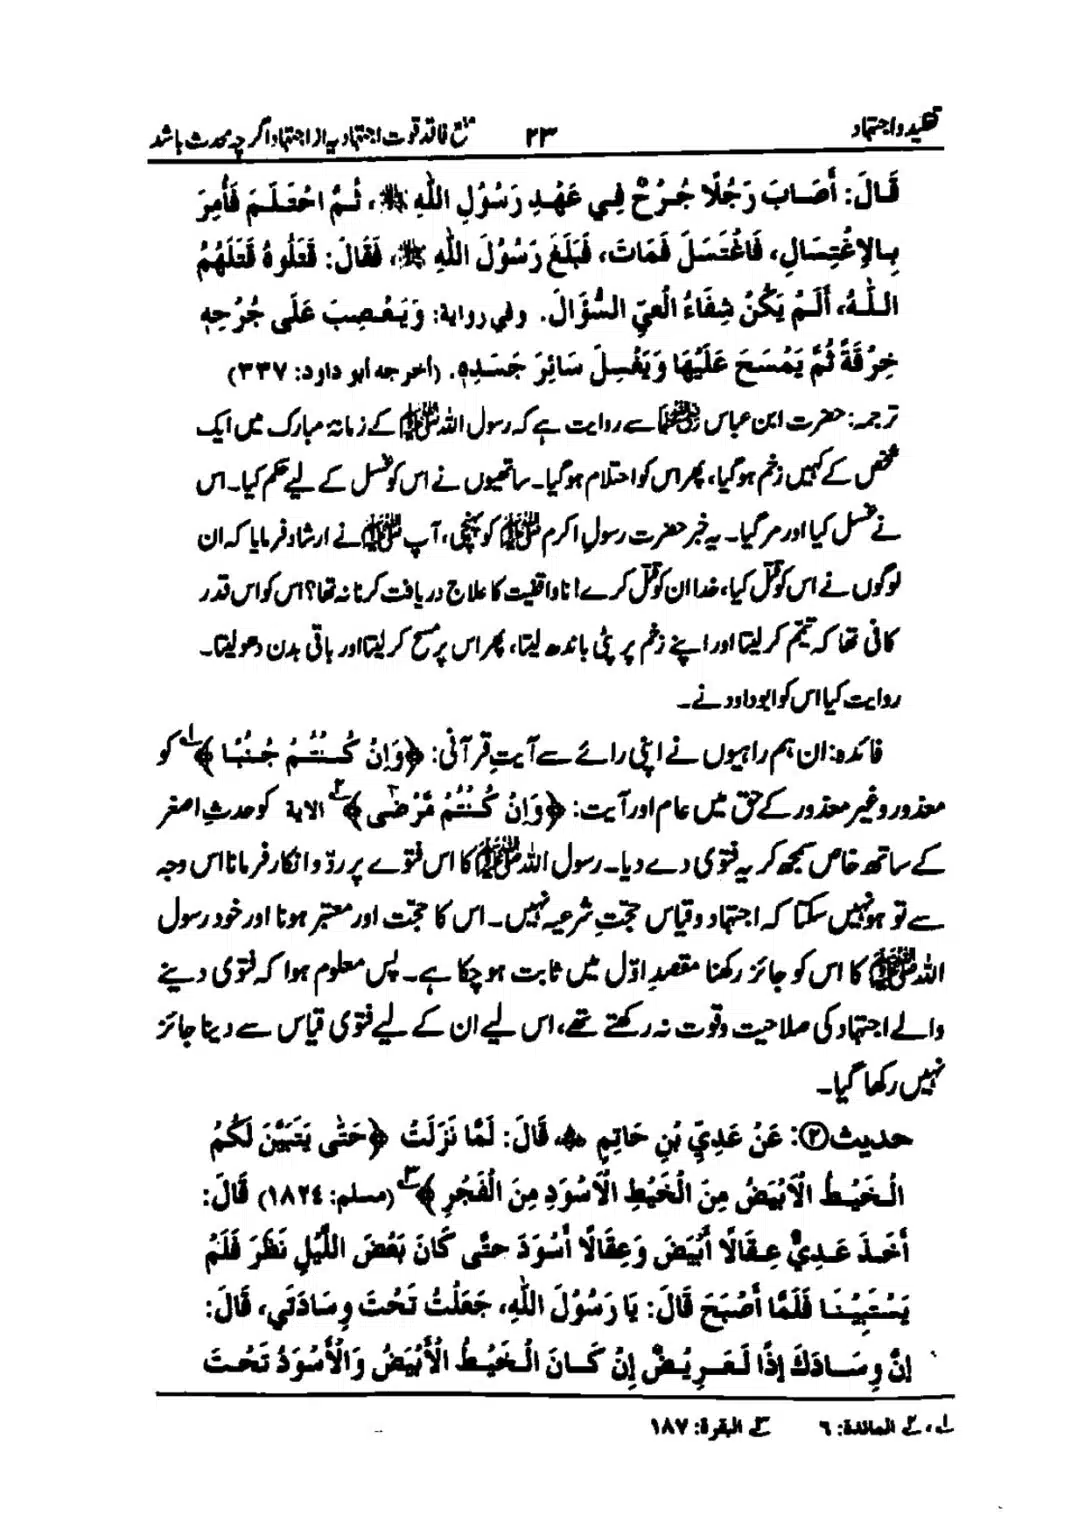 تقلید و اجتہاد ۲۳ منع فاقد قوت اجتہادیہ از اجتہاد اگرچہ محدث باشد
قَالَ: أَصَابَ رَجُلًا جُرْحٌ فِي عَهْدِ رَسُوْلِ اللّٰهِ ﷺ، ثُمَّ احْتَلَمَ فَأُمِرَ
بِالاِغْتِسَالِ، فَاغْتَسَلَ فَمَاتَ، فَبَلَغَ رَسُوْلَ اللّٰهِ ﷺ، فَقَالَ: قَتَلُوْهُ قَتَلَهُمُ
اللّٰهُ، أَلَمْ يَكُنْ شِفَاءُ الْعِيِّ السُّؤَالَ. وفي رواية: وَيَعْصِبَ عَلَى جُرْحِهٖ
خِرْقَةً ثُمَّ يَمْسَحَ عَلَيْهَا وَيَغْسِلَ سَائِرَ جَسَدِهٖ. (أخرجه أبو داود: ۳۳۷)
ترجمہ: حضرت ابن عباس رضی اللہ عنہما سے روایت ہے کہ رسول اللہ ﷺ کے زمانۂ مبارک میں ایک
شخص کے کہیں زخم ہوگیا، پھر اس کو احتلام ہوگیا۔ ساتھیوں نے اس کو غسل کے لیے حکم کیا۔ اس
نے غسل کیا اور مرگیا۔ یہ خبر حضرت رسولِ اکرم ﷺ کو پہنچی، آپ ﷺ نے ارشاد فرمایا کہ ان
لوگوں نے اس کو قتل کیا، خدا ان کو قتل کرے! ناواقفیت کا علاج دریافت کرنا نہ تھا؟ اس کو اس قدر
کافی تھا کہ تیمّم کرلیتا اور اپنے زخم پر پٹی باندھ لیتا، پھر اس پر مسح کرلیتا اور باقی بدن دھولیتا۔
روایت کیا اس کو ابوداود نے۔
فائدہ: ان ہم راہیوں نے اپنی رائے سے آیتِ قرآنی: ﴿وَاِنْ كُنْتُمْ جُنُبًا﴾ ۱ کو
معذور و غیر معذور کے حق میں عام اور آیت: ﴿وَاِنْ كُنْتُمْ مَّرْضٰٓى﴾ ۲ الایة کو حدثِ اصغر
کے ساتھ خاص سمجھ کر یہ فتویٰ دے دیا۔ رسول اللہ ﷺ کا اس فتوے پر ردّ و انکار فرمانا اس وجہ
سے تو ہو نہیں سکتا کہ اجتہاد و قیاس حجّتِ شرعیہ نہیں۔ اس کا حجّت اور معتبر ہونا اور خود رسول
اللہ ﷺ کا اس کو جائز رکھنا مقصدِ اوّل میں ثابت ہوچکا ہے۔ پس معلوم ہوا کہ فتویٰ دینے
والے اجتہاد کی صلاحیت و قوت نہ رکھتے تھے، اس لیے ان کے لیے فتویٰ قیاس سے دینا جائز
نہیں رکھا گیا۔
حدیث②: عَنْ عَدِيِّ بْنِ حَاتِمٍ ؓ، قَالَ: لَمَّا نَزَلَتْ ﴿حَتّٰى يَتَبَيَّنَ لَكُمُ
الْخَيْطُ الْاَبْيَضُ مِنَ الْخَيْطِ الْاَسْوَدِ مِنَ الْفَجْرِ﴾ ۳ (مسلم: ۱۸۲٤) قَالَ:
أَخَذَ عَدِيٌّ عِقَالًا أَبْيَضَ وَعِقَالًا أَسْوَدَ حتَّى كَانَ بَعْضَ اللَّيْلِ نَظَرَ فَلَمْ
يَسْتَبِيْنَا فَلَمَّا أَصْبَحَ قَالَ: يَا رَسُوْلَ اللّٰهِ، جَعَلْتُ تَحْتَ وِسَادَتَي، قَالَ:
إِنَّ وِسَادَكَ إِذًا لَعَرِيْضٌ إِنْ كَانَ الْخَيْطُ الْأَبْيَضُ وَالْأَسْوَدُ تَحْتَ
۱، ۲ المائدة: ٦ ۳ البقرة: ۱۸۷